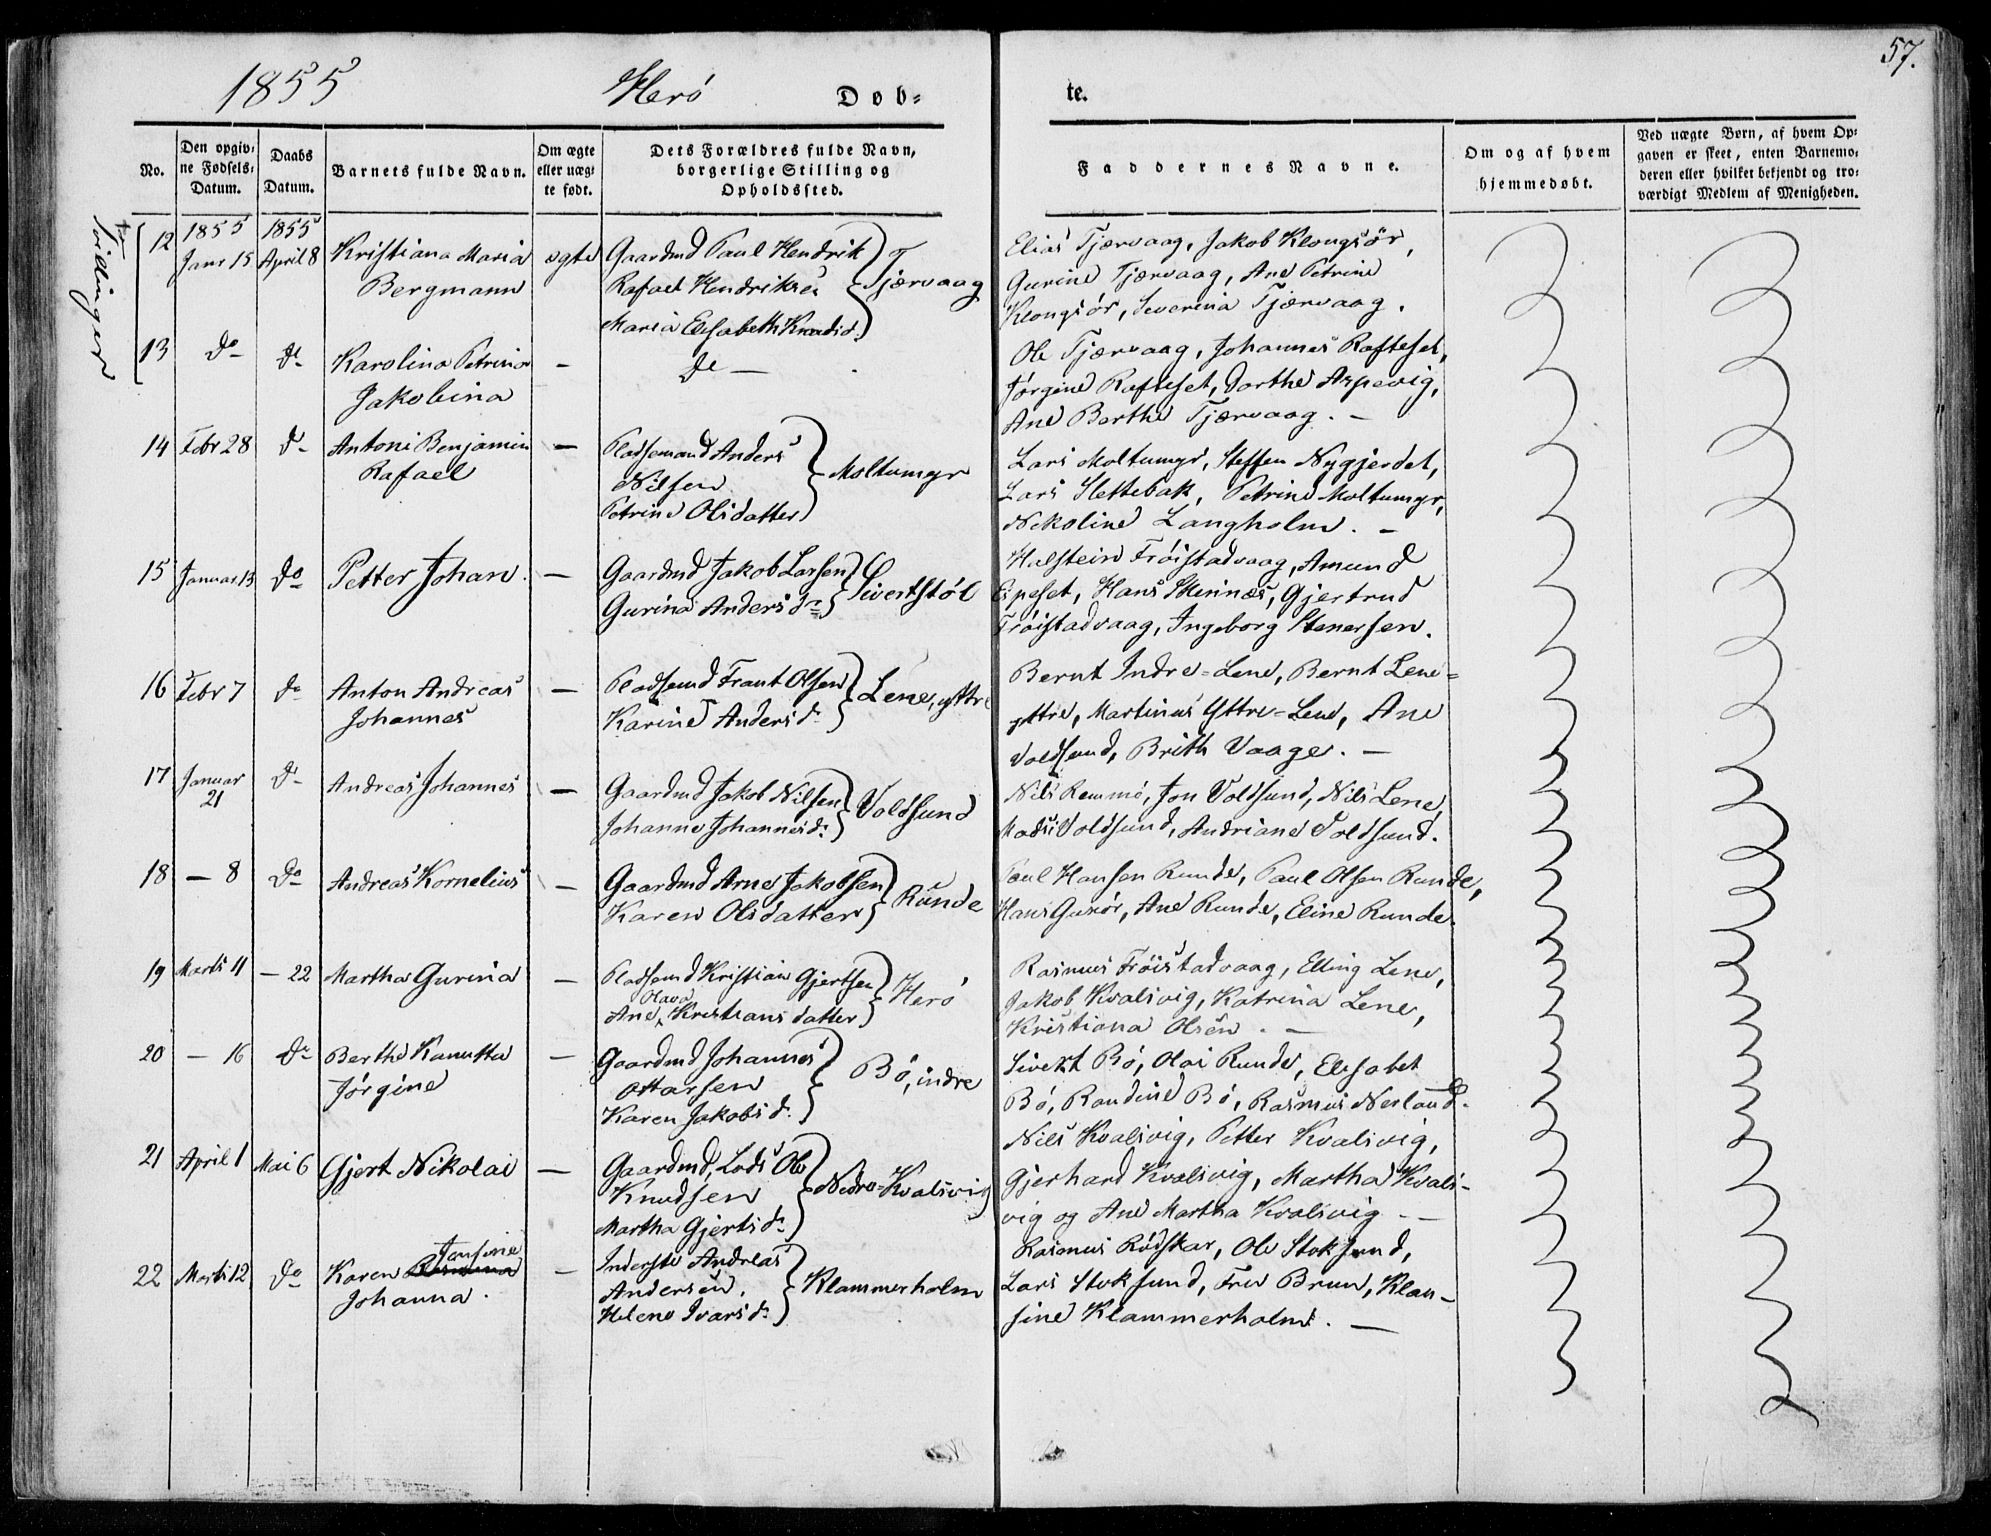 57.
1855 Herö Døb=
te.
No.
Den opgiv=
ne Fødsels=
Datum.
Daabs
Datum.
Barnets fulde Navn.
Om ægte
eller uæg=
te født.
Dets Forældres fulde Navn,
borgerlige Stilling og
Opholdssted.
Faddernes Navne.
Om og af hvem
hjemmedøbt.
Ved uægte Børn, af hvem Op=
gaven er skeet, enten Barnemo=
deren eller hvilket bekjendt og tro=
værdigt Medlem af Menigheden.
Tvillinger
12 1855 Janr 15 1855 April 8 Kristiana Maria
Bergmann
ægte
Gaardmd Paul Hendrik
Rafael Hendriksen
Maria Elisabeth Knudsd.
Tjærvaag
Elias Tjærvaag, Jakob Klongsör,
Gurine Tjærvaag, Ane Petrine
Klongsör, Severina Tjærvaag.
13 Do De Karolina Petrina
Jakobina
— De —
Ole Tjærvaag, Johannes Rafteset,
Jørgine Rafteset, Dorthe Aspevig,
Ane Berthe Tjærvaag. —
14 Febr 28 De Antoni Benjamin
Rafael
—
Pladsemand Anders
Nilsen
Petrine Olsdatter
Moltumyr
Lars Moltumyr, Steffen Nygjerdet,
Lars Slettebak, Petrine Moltumyr,
Nekoline Langholm. —
15 Januar 13 Do Petter Johan. —
Gaardmd Jakob Larsen
Gurina Andersdr
Sivertstöl
Halstein Fröistadvaag, Amund
Epeset, Hans Skinnes, Gjertrud
Fröistadvaag, Ingeborg Stenersen.
16 Febr 7 De Anton Andreas
Johannes
—
Pladsemd Frant Olsen
Karine Andersd.
Lene, yttre
Bernt Indre=Lene, Bernt Lene=
yttre, Martinus Yttre=Lene, Ane
Voldsund, Brith Vaage. —
17 Januar
21
De Andreas Johannes —
Gaardmd Jakob Nilsen
Johanne Johannesd.
Voldsund
Nils Remmö, Jon Voldsund, Nils Lene
Mads Voldsund, Andriane Voldsund.
18 — 8 Do Andreas Kornelius —
Gaardmd Arne Jakobsen
Karen Olsdatter
Runde
Paul Hansen Runde, Paul Olsen Runde,
Hans Gurör, Ane Runde, Eline Runde.
19 Marts 11 — 22 Martha Gurina —
Pladsemd Kristian Gjertsen
Olava
Ane, Kristiansdatter
Herö
Rasmus Fröistadvaag, Elling Lene,
Jakob Kvalsvig, Katrina Lene,
Kristiana Olsen. —
20 — 16 De Berthe Kanutta
Jörgine
—
Gaardmd Johannes
Ottarsen
Karen Jakobsd.
Bö, indre
Sivert Bö, Olai Runde, Elisabet
Bö, Randine Bö, Rasmus Nerland.
21 April 1 Mai 6 Gjert Nikolai —
Gaardmd, Lods Ole
Knudsen
Martha Gjertsd.
Nedre=Kvalsvig
Nils Kvalsvig, Petter Kvalsvig,
Gjerhard Kvalsvig, Martha Kvals-
vig og Ane Martha Kvalsvig —
22 Marts 12 Do Karen Jensine
Johanna.
—
Inderste Andreas
Andersen.
Helene Ivarsd.
Klammerholm
Rasmus Rödskar, Ole Stoksund,
Lars Stoksund, Frw Brun, Klau-
sine Klammerholm. —